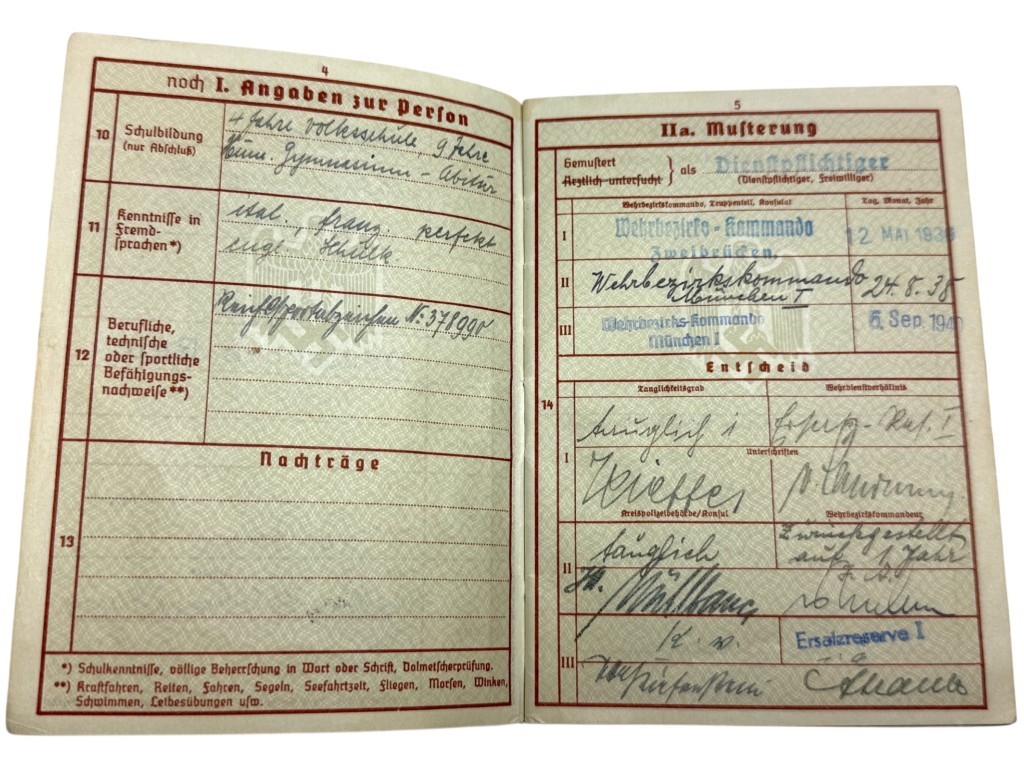 4
noch I. Angaben zur Person
10
Schulbildung
(nur Abschluß)
4 Jahre Volksschule, 9 Jahre
Hum. Gymnasium - Abitur
11
Kenntnisse in
Fremd-
sprachen*)
ital., franz. perfekt
engl. Schulk.
12
Berufliche,
technische
oder sportliche
Befähigungs-
nachweise**)
Reichssportabzeichen No 378990
Nachträge
13
*) Schulkenntnisse, völlige Beherrschung in Wort oder Schrift, Dolmetscherprüfung.
**) Kraftfahren, Reiten, Fahren, Segeln, Seefahrtzeit, Fliegen, Morsen, Winken,
Schwimmen, Leibesübungen usw.
5
IIa. Musterung
Gemustert
Ärztlich untersucht
} als Dienstpflichtiger
(Dienstpflichtiger, Freiwilliger)
Wehrbezirkskommando, Truppenteil, Konsulat
Tag, Monat, Jahr
I
Wehrbezirks-Kommando
Zweibrücken.
12 MAI 1936
II
Wehrbezirkskommando
München I
24.8.38
III
Wehrbezirks-Kommando
München I
6. Sep. 1940
Entscheid
14
Tauglichkeitsgrad
Wehrdienstverhältnis
I
tauglich 1
Ersatz-Res. I
Unterschriften
Kreispolizeibehörde/Konsul
Wehrbezirkskommandeur
II
tauglich
Zurückgestellt
auf 1 Jahr
III
k. v.
Ersatzreserve I